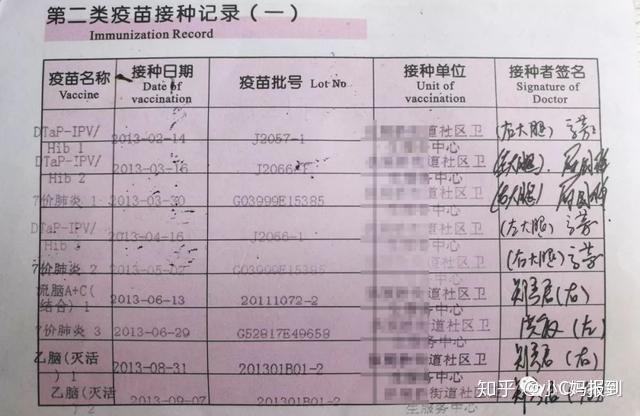 第二类疫苗接种记录(一)
Immunization Record
疫苗名称 接种日期 疫苗批号 Lot No 接种单位 接种者签名
Vaccine Date of vaccination Unit of vaccination Signature of Doctor
DTaP-IPV/ 道社区卫 (右大腿)
Hib 1 2013-02-14 J2057-1 中心
DTaP-IPV/ 道社区卫
Hib 2 2013-03-16 务中心
7价肺炎 1 2013-03-30 G03999E15385 道社区卫
中心
DTaP-IPV/ 道社区卫 (左大腿)
Hib 3 2013-04-16 J2066-1 中心
7价肺炎 2 2013-05-07 G03999E15385 道社区卫 (左大腿)
中心
流脑A+C( 道社区卫 (右)
结合) 1 2013-06-13 20111072-2 中心
7价肺炎 3 2013-06-29 G52817E49658 道社区卫 (左)
服务中心
乙脑(灭活 道社区卫 (右)
) 1 2013-08-31 201301B01-2 服务中心
乙脑(灭活 街道社区卫
) 2 2013-09-07 201301B01-2 生服务中心
知乎 @小C妈报到